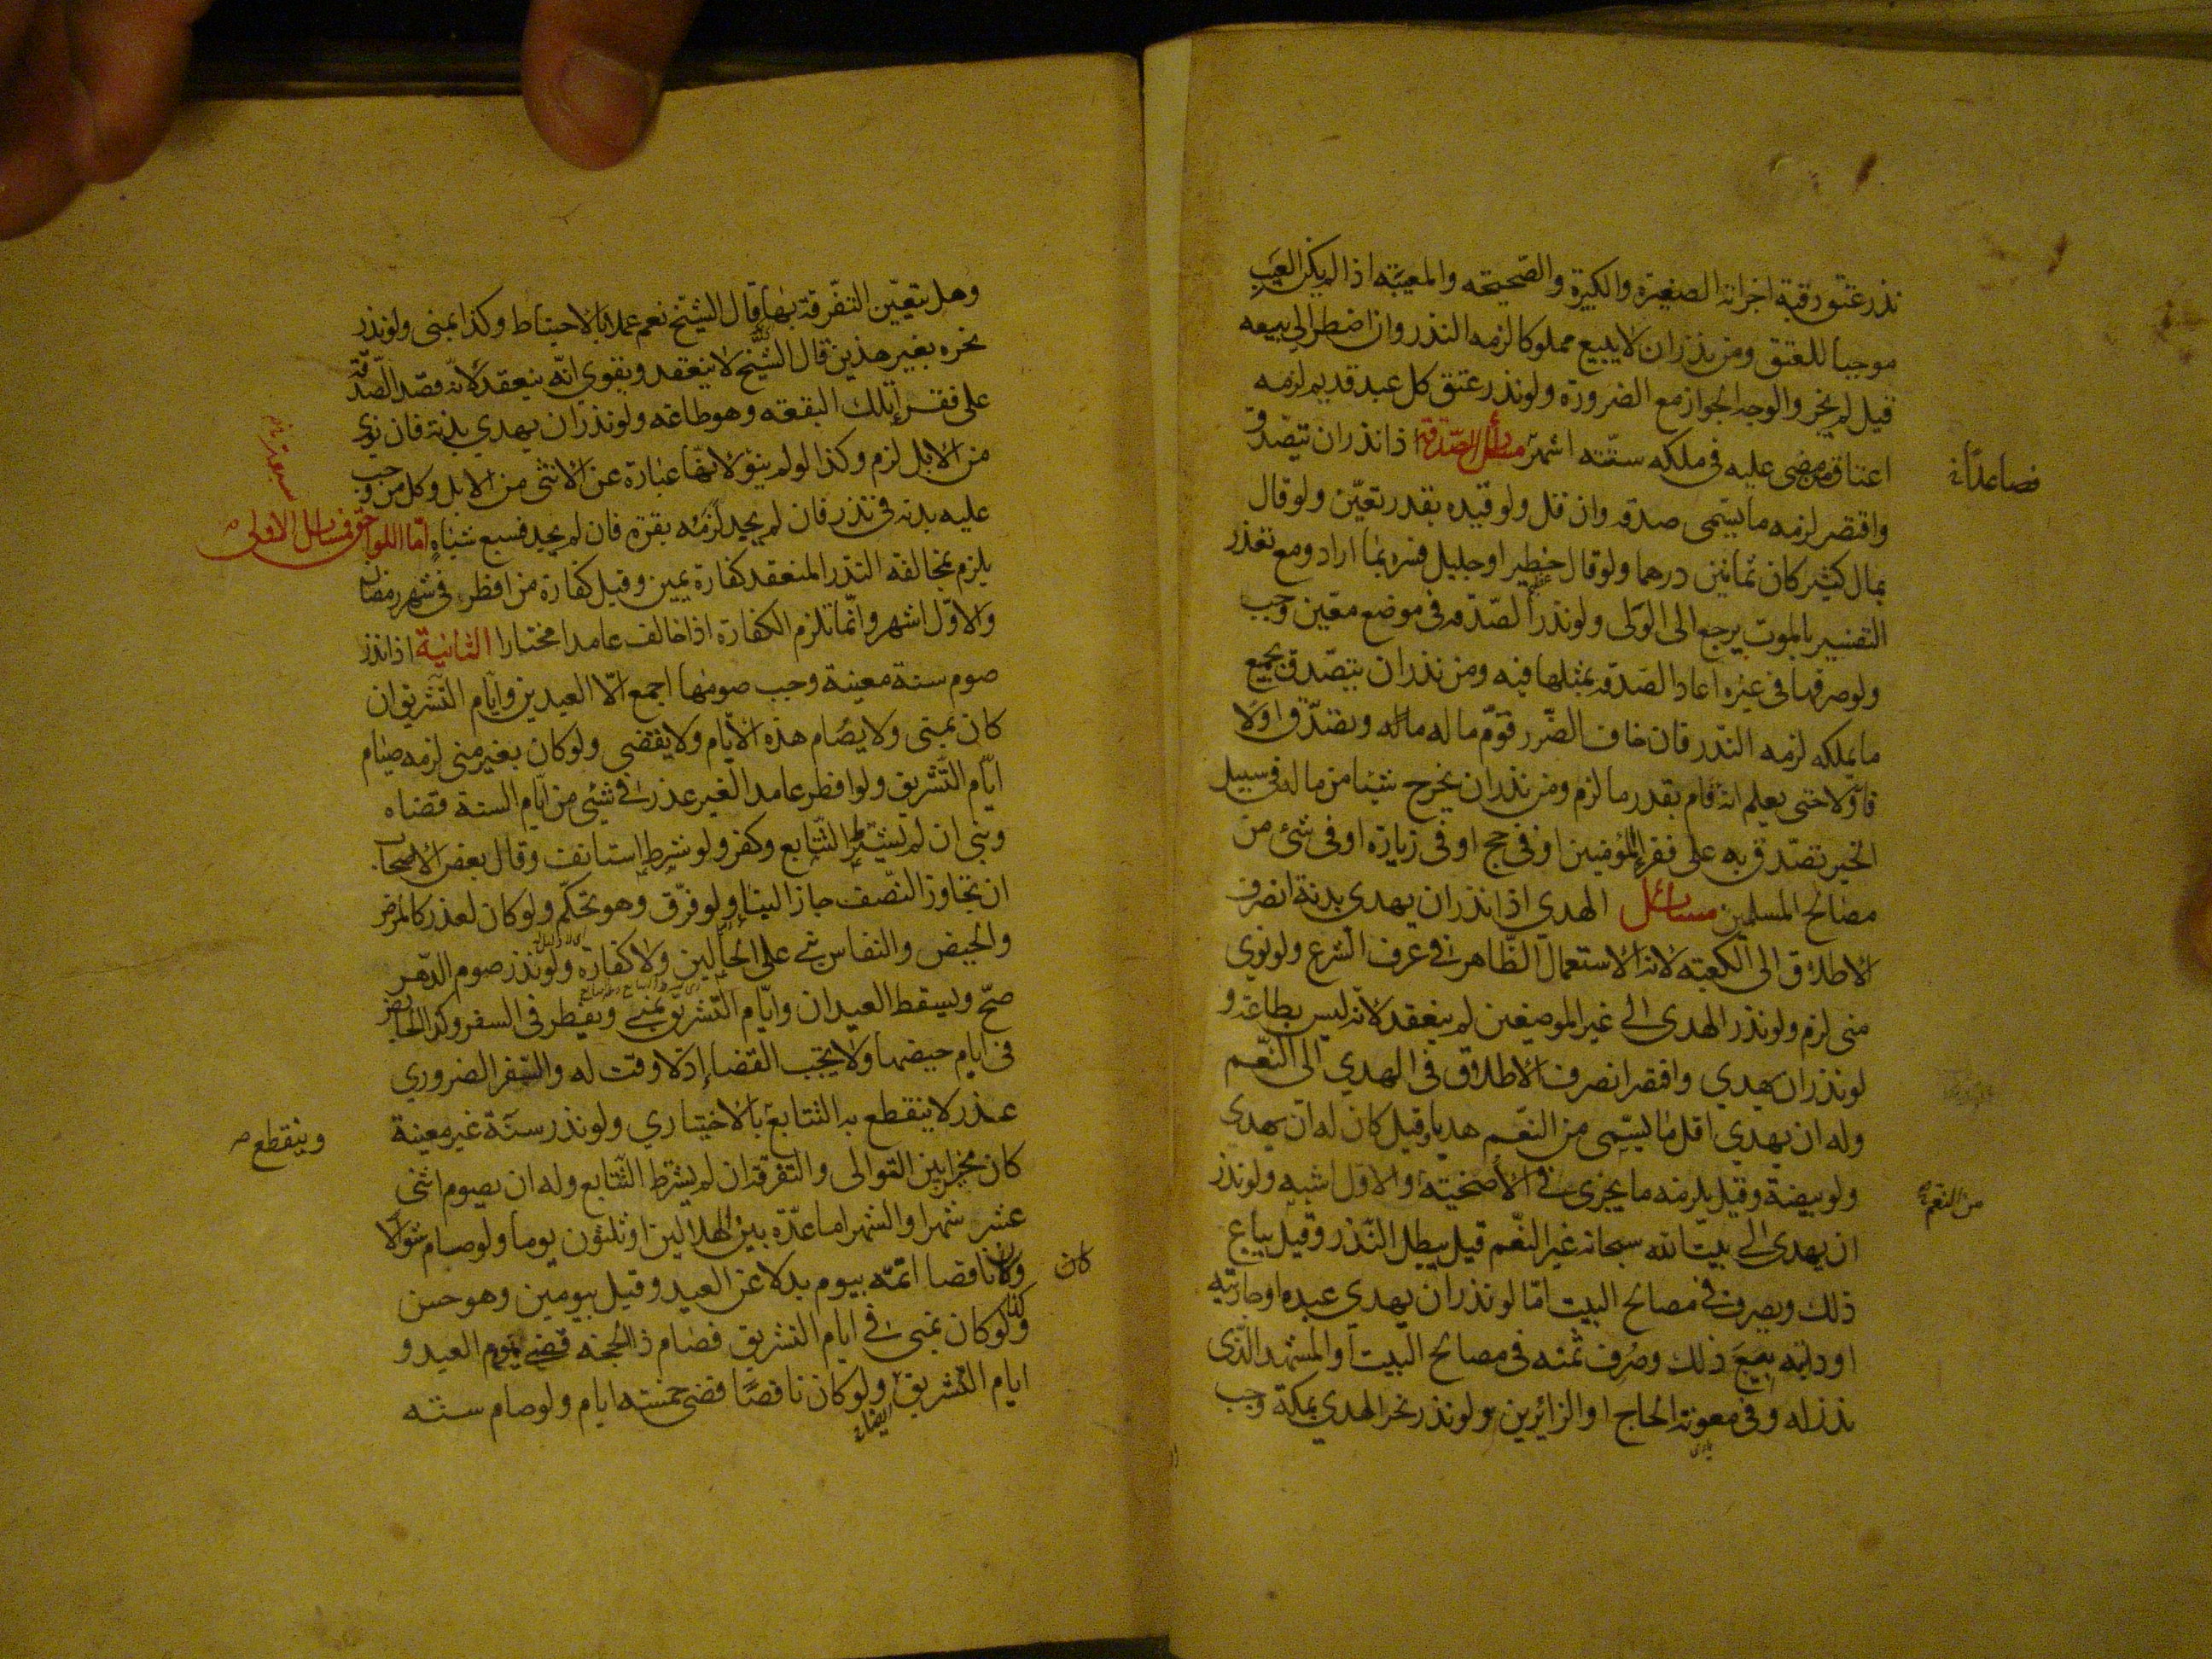 نذر عتق رقبة اجزاته الصغيرة والكبيرة والصحيحه والمعيبة اذا لم يكن العيب
موجبا للعتق ومن نذر ان لا يبيع مملوكا لزمه النذر وان اضطر الى بيعه
قيل لم يجز والوجه الجواز مع الضرورة ولو نذر عتق كل عبد قديم لزمه
اعتاق من مضى عليه فى ملكه ستته اشهر مسائل الصدقة اذا نذر ان يتصدق
فصاعدا
واقتصر لزمه ما يسمى صدقه وان قل ولو قيده بقدر تعين ولو قال
بمال كثير كان ثمانين درهما ولو قال خطير او جليل فسره بما اراد ومع تعذر
التفسير بالموت يرجع الى الولى ولو نذر الصدقه فى موضع معين وجب
ولو صرفها فى غيره اعاد الصدقه بمثلها فيه ومن نذر ان يتصدق بجميع
ما يملكه لزمه النذر فان خاف الضرر قوم ماله ماله وتصدق اولا
فاولا حتى يعلم انه قام بقدر ما لزم ومن نذر ان يخرج شيئا من ماله فى سبيل
الخير تصدق به على فقراء المؤمنين او فى حج او فى زيارة او فى شئ من
مصالح المسلمين مسائل الهدي اذا نذر ان يهدى بدنة انصرف
الاطلاق الى الكعبه لانه الاستعمال الظاهر فى عرف الشرع ولو نوى
منى لزم ولو نذر الهدى الى غير الموضعين لم ينعقد لانه ليس بطاعة و
لو نذر ان يهدي واقتصر انصرف الاطلاق فى الهدي الى النعم
وله ان يهدي اقل ما يسمى من النعم هديا وقيل كان له ان يهدى
من النعم
ولو بيضة وقيل يلزمه ما يجزى فى الاضحيته والاول اشبه ولو نذر
ان يهدى الى بيت الله سبحانه غير النعم قيل يبطل النذر وقيل يباع
ذلك ويصرف فى مصالح البيت اما لو نذر ان يهدي عبده او جاريته
او دابته بيع ذلك وصرف ثمنه فى مصالح البيت او المشهد الذى
نذر له وفى معونة الحاج او الزائرين ولو نذر نحر الهدي بمكة وجب
وهل يتعين التفرقة بها قال الشيخ نعم عملا بالاحتياط وكذا بمنى ولو نذر
نحره بغير هذين قال الشيخ لا ينعقد ويقوي انه ينعقد لانه قصد الصدقة
على فقراء تلك البقعه وهو طاعه ولو نذر ان يهدي بدنة فان نوى
من الابل لزم وكذا لو لم ينو لانها عبارة عن الانثى من الابل وكل من وجب
عليه بدنه فى نذر فان لم يجد لزمه بقرة فان لم يجد فسبع شياه اما اللواحق فمسائل الاولى
يلزم بمخالفة النذر المنعقد كفارة يمين وقيل كفارة من افطر فى شهر رمضان
والاول اشهر وانما تلزم الكفارة اذا خالف عامدا مختارا الثانية اذا نذر
صوم سنة معينة وجب صومها اجمع الا العيدين وايام التشريق ان
كان بمنى ولا يصام هذه الايام ولا يقضى ولو كان بغير منى لزمه صيام
ايام التشريق ولو افطر عامدا لغير عذر فى شئى من ايام السنة قضاه
وبنى ان لم يشترط التتابع وكفر ولو شرط استانف وقال بعض الاصحاب
ان تجاوز النصف جاز البناء ولو فرق وهو تحكم ولو كان لعذر كالمرض
والحيض والنفاس بنى على الحالين ولا كفارة ولو نذر صوم الدهر
صح ويسقط العيدان وايام التشريق بمنى ويفطر فى السفر وكذا الحايض
فى ايام حيضها ولا يجب القضاء اذ لا وقت له والسفر الضروري
عذر لا ينقطع به التتابع بالاختياري ولو نذر سنة غير معينة
وينقطع
كان مخيرا بين التوالى والتفرقة ان لم يشترط التتابع وله ان يصوم اثنى
عشر شهرا والشهر اما عدة بين الهلالين او ثلثون يوما ولو صام شوالا
وكان ناقصا اتمه بيوم بدلا عن العيد وقيل بيومين وهو حسن
كان
وكذا لو كان بمنى فى ايام التشريق فصام ذا الحجه قضى يوم العيد و
ايام التشريق ولو كان ناقصا قضى خمسته ايام ولو صام سنته
ايضا